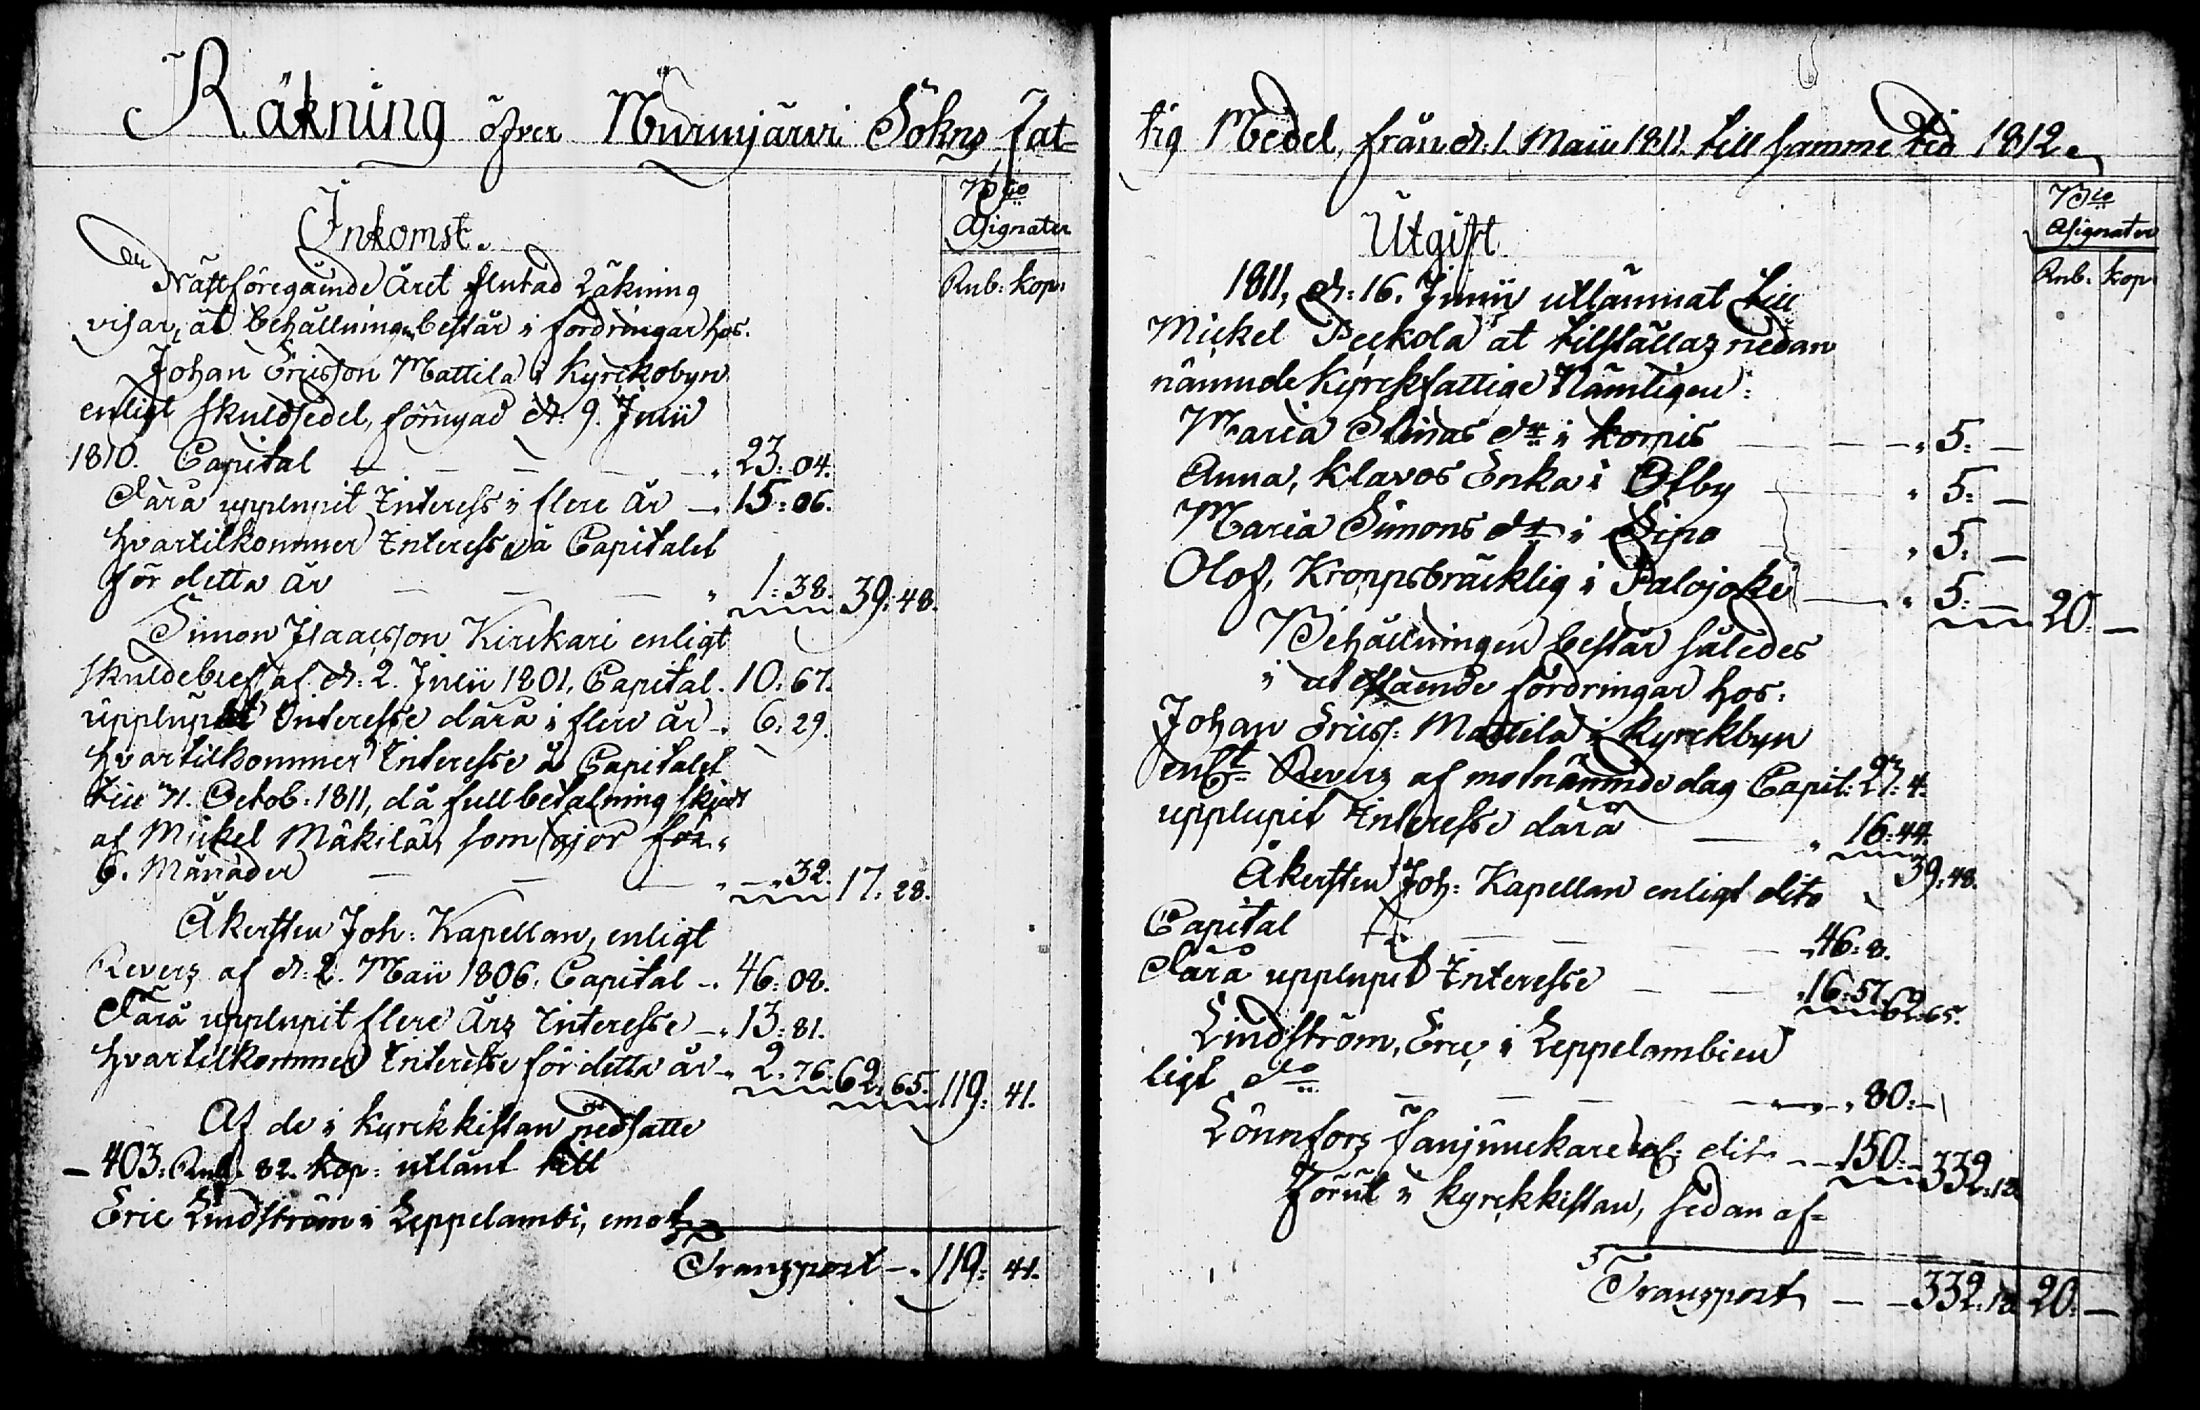 Räkning öfver Nurmjärvi Sokns Fat=
Inkomst.
B:co
Assignater
Rub: kop:
Den Nästföregående Året slutad Räkning
visar, at behållningen består i fordringar hos.
Johan Ericsson Mattila i Kyrckobyn
enligt skuldsedel, förnyad d: 9. Junii
1810. Capital — — — — 23: 04.
Dära upplupit Interess i flere år — 15: 06.
hvartilkommer Interess å Capitalet
för detta år — — — 1: 38. 39: 48.
Simon Isaacsson Kirckari enligt
skuldebref af d: 2. Junii 1801. Capital. 10: 67.
upplupet Interesse därå i flere år — 6: 29.
hvartilkommer Interesse å Capitalet
till 31. Octob: 1811, då full betalning skjedt
af Mickel Mäkilä, som gjör för
6. Månader — — — „ 32. 17: 28.
Åkersten Joh: Kapellan, enligt
Revers af d: 2. Maii 1806. Capital — 46: 08.
Därå upplupit flere Års Interesse — 13: 81.
hvartilkommer Interesse för detta år — 2: 76. 62: 65. 119: 41.
Af de i Kyrckkistan nedsatte
— 403: Rub. 82. kop: utlånt till
Eric Lindström i Leppelambi, emot
Transport — 119: 41.
tig Medel, från d: 1. Maii 1811. till samme tid 1812.
Utgift
B:co
Assignater
Rub: kop
1811, d: 16. Junii utlämnat till
Mickel Peckola at tillställas nedan
nämnde Kyrckfattige Nämligen:
Maria dr i — — 5: —
Anna, Klavos Enka i Ofby — 5: —
Maria Simons dr i — 5: —
Olof, Kroppsbräcklig i Palojoki — 5: — 20: —
Behållningen består således
i utestående fordringar hos:
Johan Erics: Mattila i Kyrckbyn
enlt Revers af motnämnde dag Capit: 23: 4.
upplupit Interesse därå — 16: 44.
39: 48.
Åkersten Joh: Kapellan enligt dito
Capital — — — 46: 8.
Därå upplupit Interesse — — 16: 57. 62: 65.
Lindström, Eric, i Leppelambi en
ligt do — — — 80: —
Lönnfors Fanjunckare af: dito — 150: — 332: 13
Förut i Kyrckkistan, sedan af=
Transport — — 332: 13 20: —